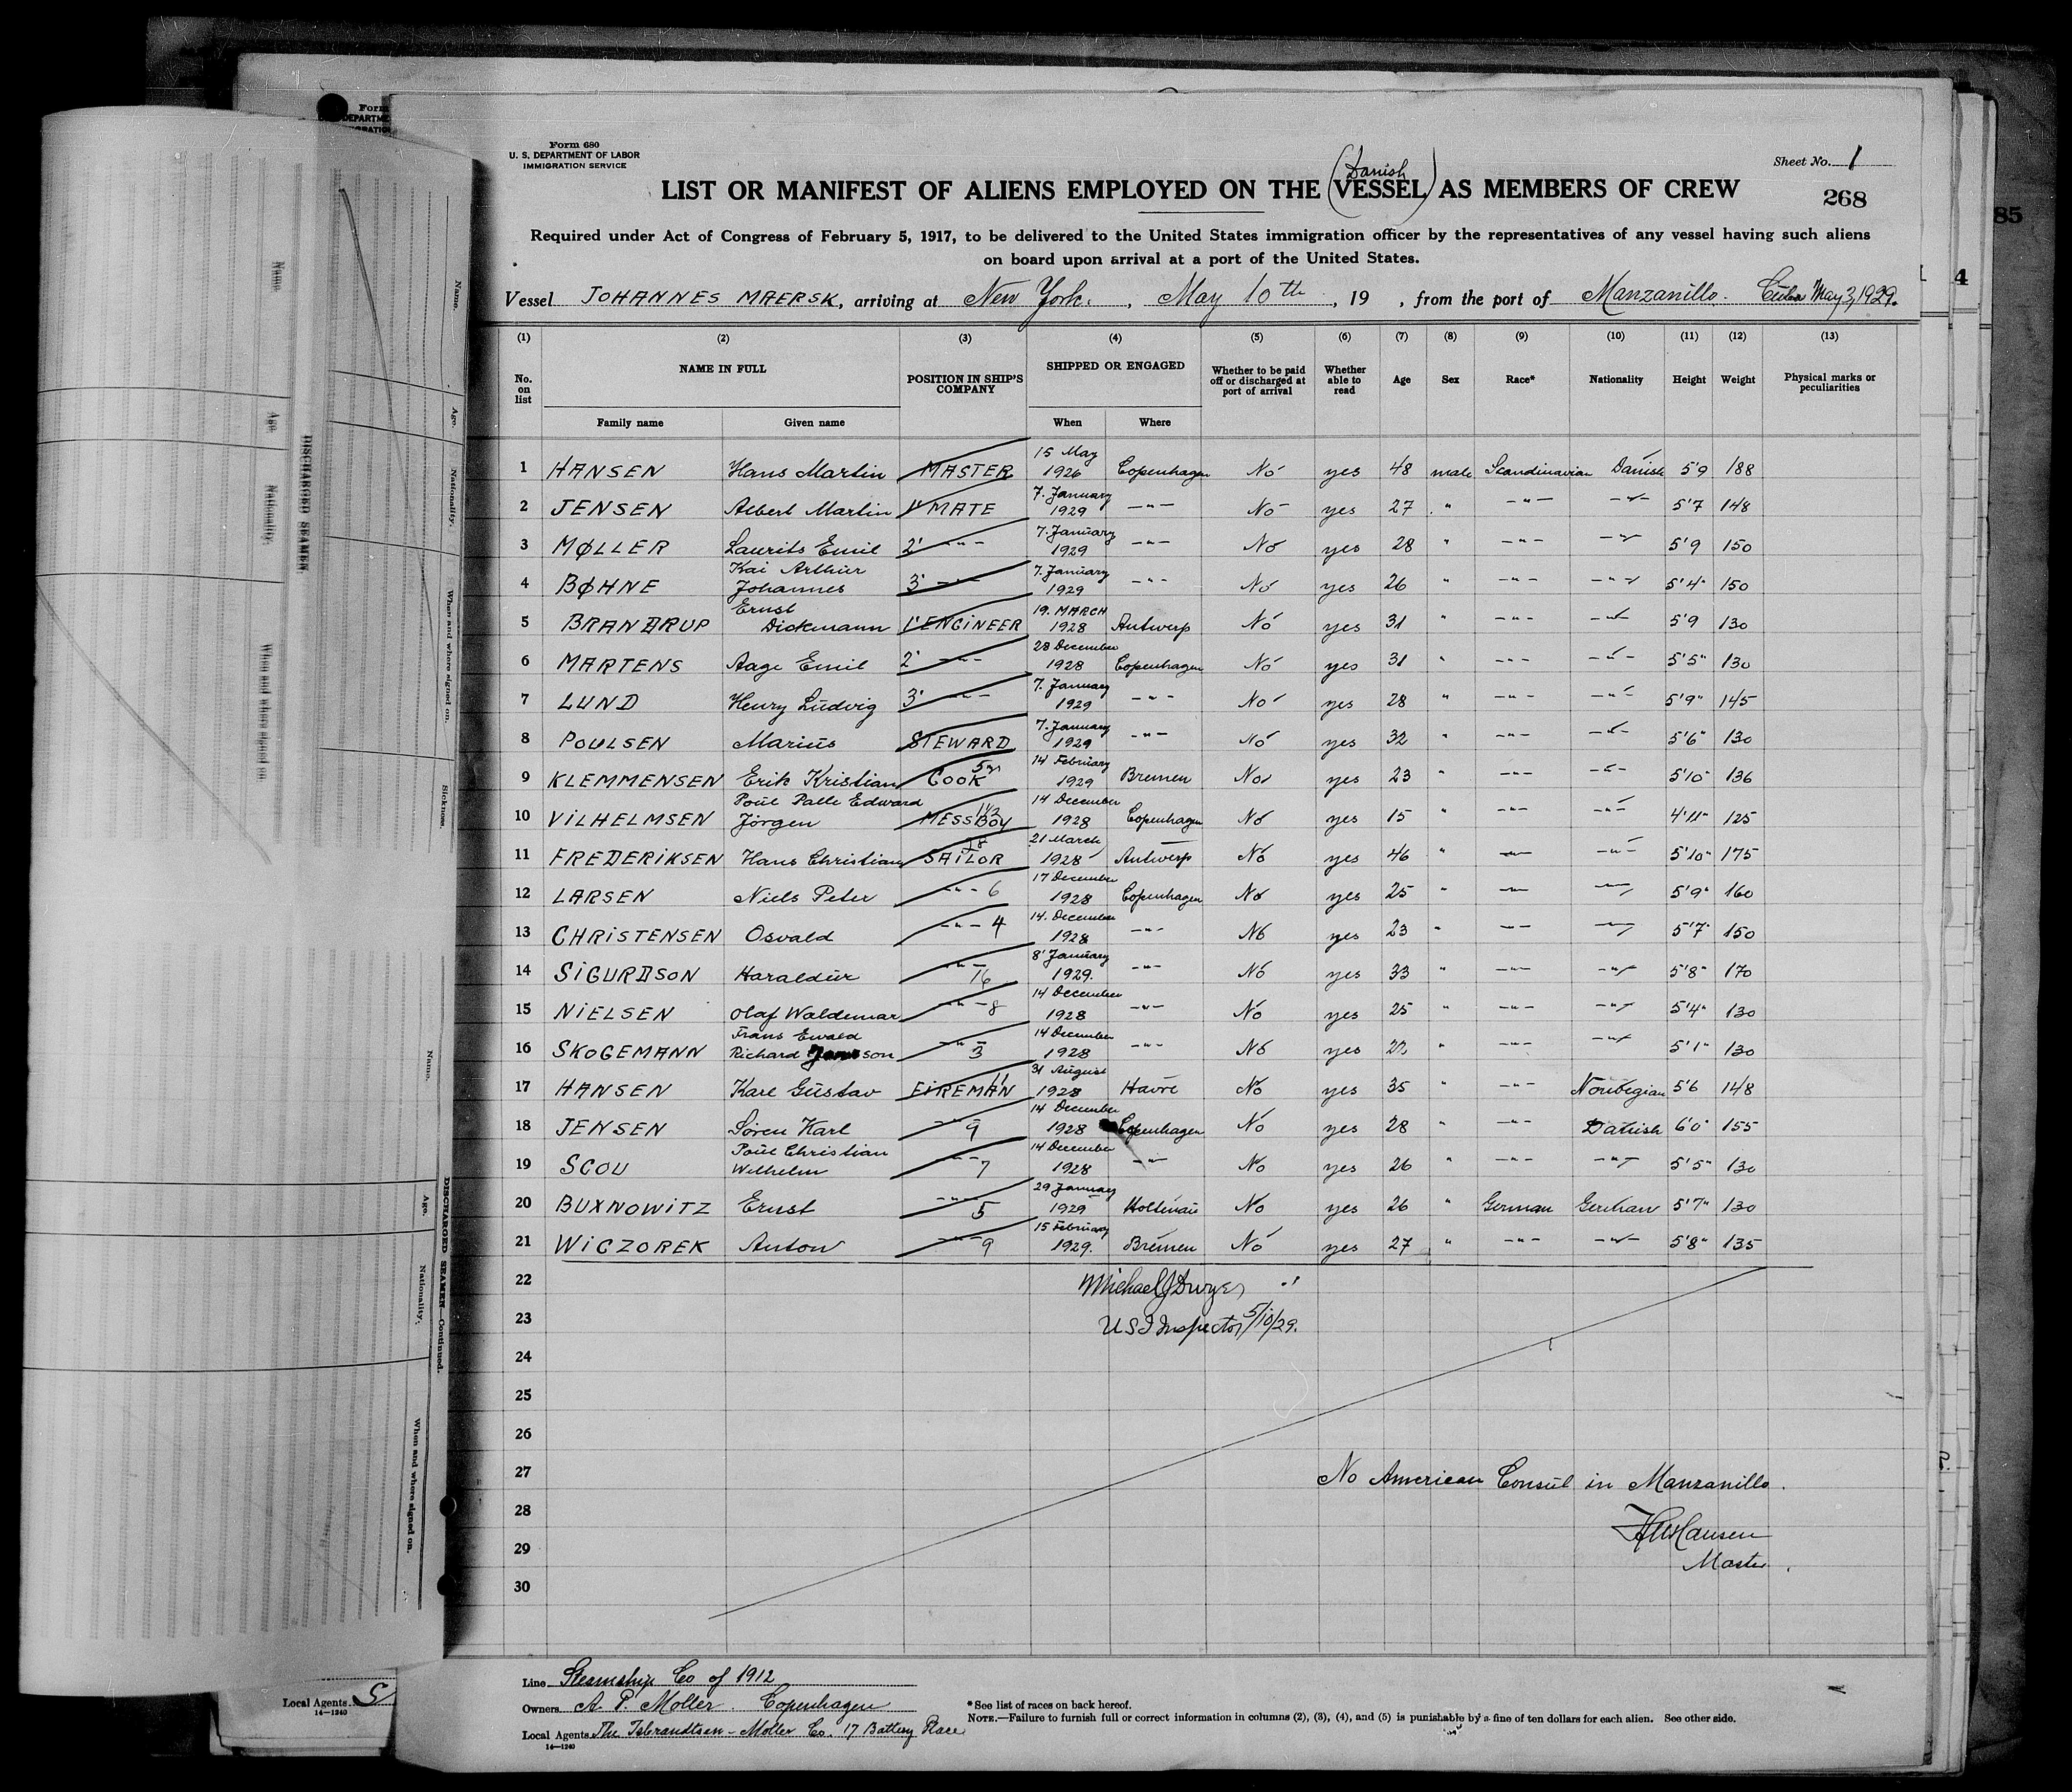 Form 680
U. S. DEPARTMENT OF LABOR
IMMIGRATION SERVICE
Sheet No. 1
268
(Danish)
LIST OR MANIFEST OF ALIENS EMPLOYED ON THE VESSEL AS MEMBERS OF CREW
Required under Act of Congress of February 5, 1917, to be delivered to the United States immigration officer by the representatives of any vessel having such aliens
on board upon arrival at a port of the United States.
Vessel JOHANNES MAERSK, arriving at New York, May 10th, 19 , from the port of Manzanillo. Cuba May 3, 1929.
(1) (2) (3) (4) (5) (6) (7) (8) (9) (10) (11) (12) (13)
No. on list NAME IN FULL POSITION IN SHIP'S COMPANY SHIPPED OR ENGAGED Whether to be paid off or discharged at port of arrival Whether able to read Age Sex Race* Nationality Height Weight Physical marks or peculiarities
Family name Given name When Where
1 HANSEN Hans Martin MASTER 15 May 1926 Copenhagen No yes 48 male Scandinavian Danish 5'9 188
2 JENSEN Albert Martin 1' MATE 7. January 1929 -"- No yes 27 " -"- -"- 5'7 148
3 MØLLER Laurits Emil 2' -"- 7. January 1929 -"- No yes 28 " -"- -"- 5'9 150
4 BØHNE Kai Arthur Johannes 3' -"- 7. January 1929 -"- No yes 26 " -"- -"- 5'4" 150
5 BRANDRUP Ernst Dickmann 1' ENGINEER 19. MARCH 1928 Antwerp No yes 31 " -"- -"- 5'9 130
6 MARTENS Aage Emil 2' -"- 28 December 1928 Copenhagen No yes 31 " -"- -"- 5'5" 130
7 LUND Henry Ludvig 3' -"- 7. January 1929 -"- No yes 28 " -"- -"- 5'9" 145
8 POULSEN Marius STEWARD 7. January 1929 -"- No yes 32 " -"- -"- 5'6" 130
9 KLEMMENSEN Erik Kristian COOK 5 yr 14 February 1929 Bremen No yes 23 " -"- -"- 5'10" 136
10 VILHELMSEN Poul Palle Edward Jörgen MESSBOY 1 1/2 14 December 1928 Copenhagen No yes 15 " -"- -"- 4'11" 125
11 FREDERIKSEN Hans Christian SAILOR 28 21 March 1928 Antwerp No yes 46 " -"- -"- 5'10" 175
12 LARSEN Niels Peter -"- 6 17 December 1928 Copenhagen No yes 25 " -"- -"- 5'9" 160
13 CHRISTENSEN Osvald -"- 4 14. December 1928 -"- No yes 23 " -"- -"- 5'7" 150
14 SIGURDSON Haraldur -"- 16 8' January 1929. -"- No yes 33 " -"- -"- 5'8" 170
15 NIELSEN Olaf Waldemar -"- 8 14 December 1928 -"- No yes 25 " -"- -"- 5'4" 130
16 SKOGEMANN Frans Ewald Richard son -"- 3 14 December 1928 -"- No yes 22 " -"- -"- 5'1" 130
17 HANSEN Karl Gustav FIREMAN 11 31 August 1928 Havre No yes 35 " -"- Norwegian 5'6 148
18 JENSEN Søren Karl -"- 9 14 December 1928 Copenhagen No yes 28 " -"- Danish 6'0" 155
19 SCOU Poul Christian Wilhelm -"- 7 14 December 1928 -"- No yes 26 " -"- -"- 5'5" 130
20 BUXNOWITZ Ernst -"- 5 29 January 1929 Holtenau No yes 26 " German German 5'7" 130
21 WICZOREK Anton -"- 9 15 February 1929. Bremen No yes 27 " -"- -"- 5'8" 135
22 Michael J Dwyer
23 U S I Inspector 5/10/29.
24
25
26
27 No American Consul in Manzanillo.
28 HMHansen
29 Master.
30
Line Steamship Co of 1912
Owners A. P. Moller. Copenhagen
Local Agents The Isbrandtsen-Moller Co. 17 Battery Place
14—1240
*See list of races on back hereof.
NOTE.—Failure to furnish full or correct information in columns (2), (3), (4), and (5) is punishable by a fine of ten dollars for each alien. See other side.
Local Agents
14—1240
DISCHARGED SEAMEN.
Name. Age. Nationality. When and where signed on. Sickness.
DISCHARGED SEAMEN—Continued.
Name. Age. Nationality. When and where signed on.
85
4